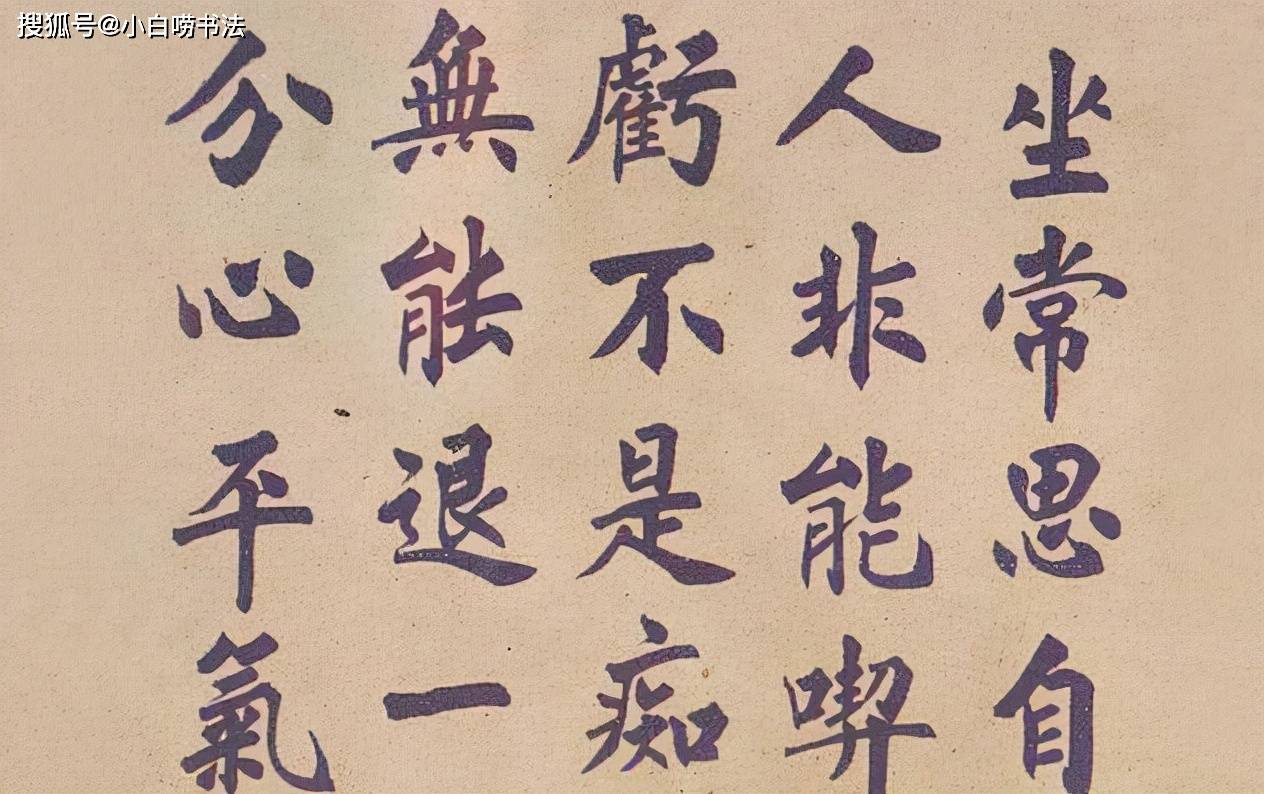 搜狐号@小白唠书法
坐常思自
人非能喫
虧不是痴
無能退一
分心平氣